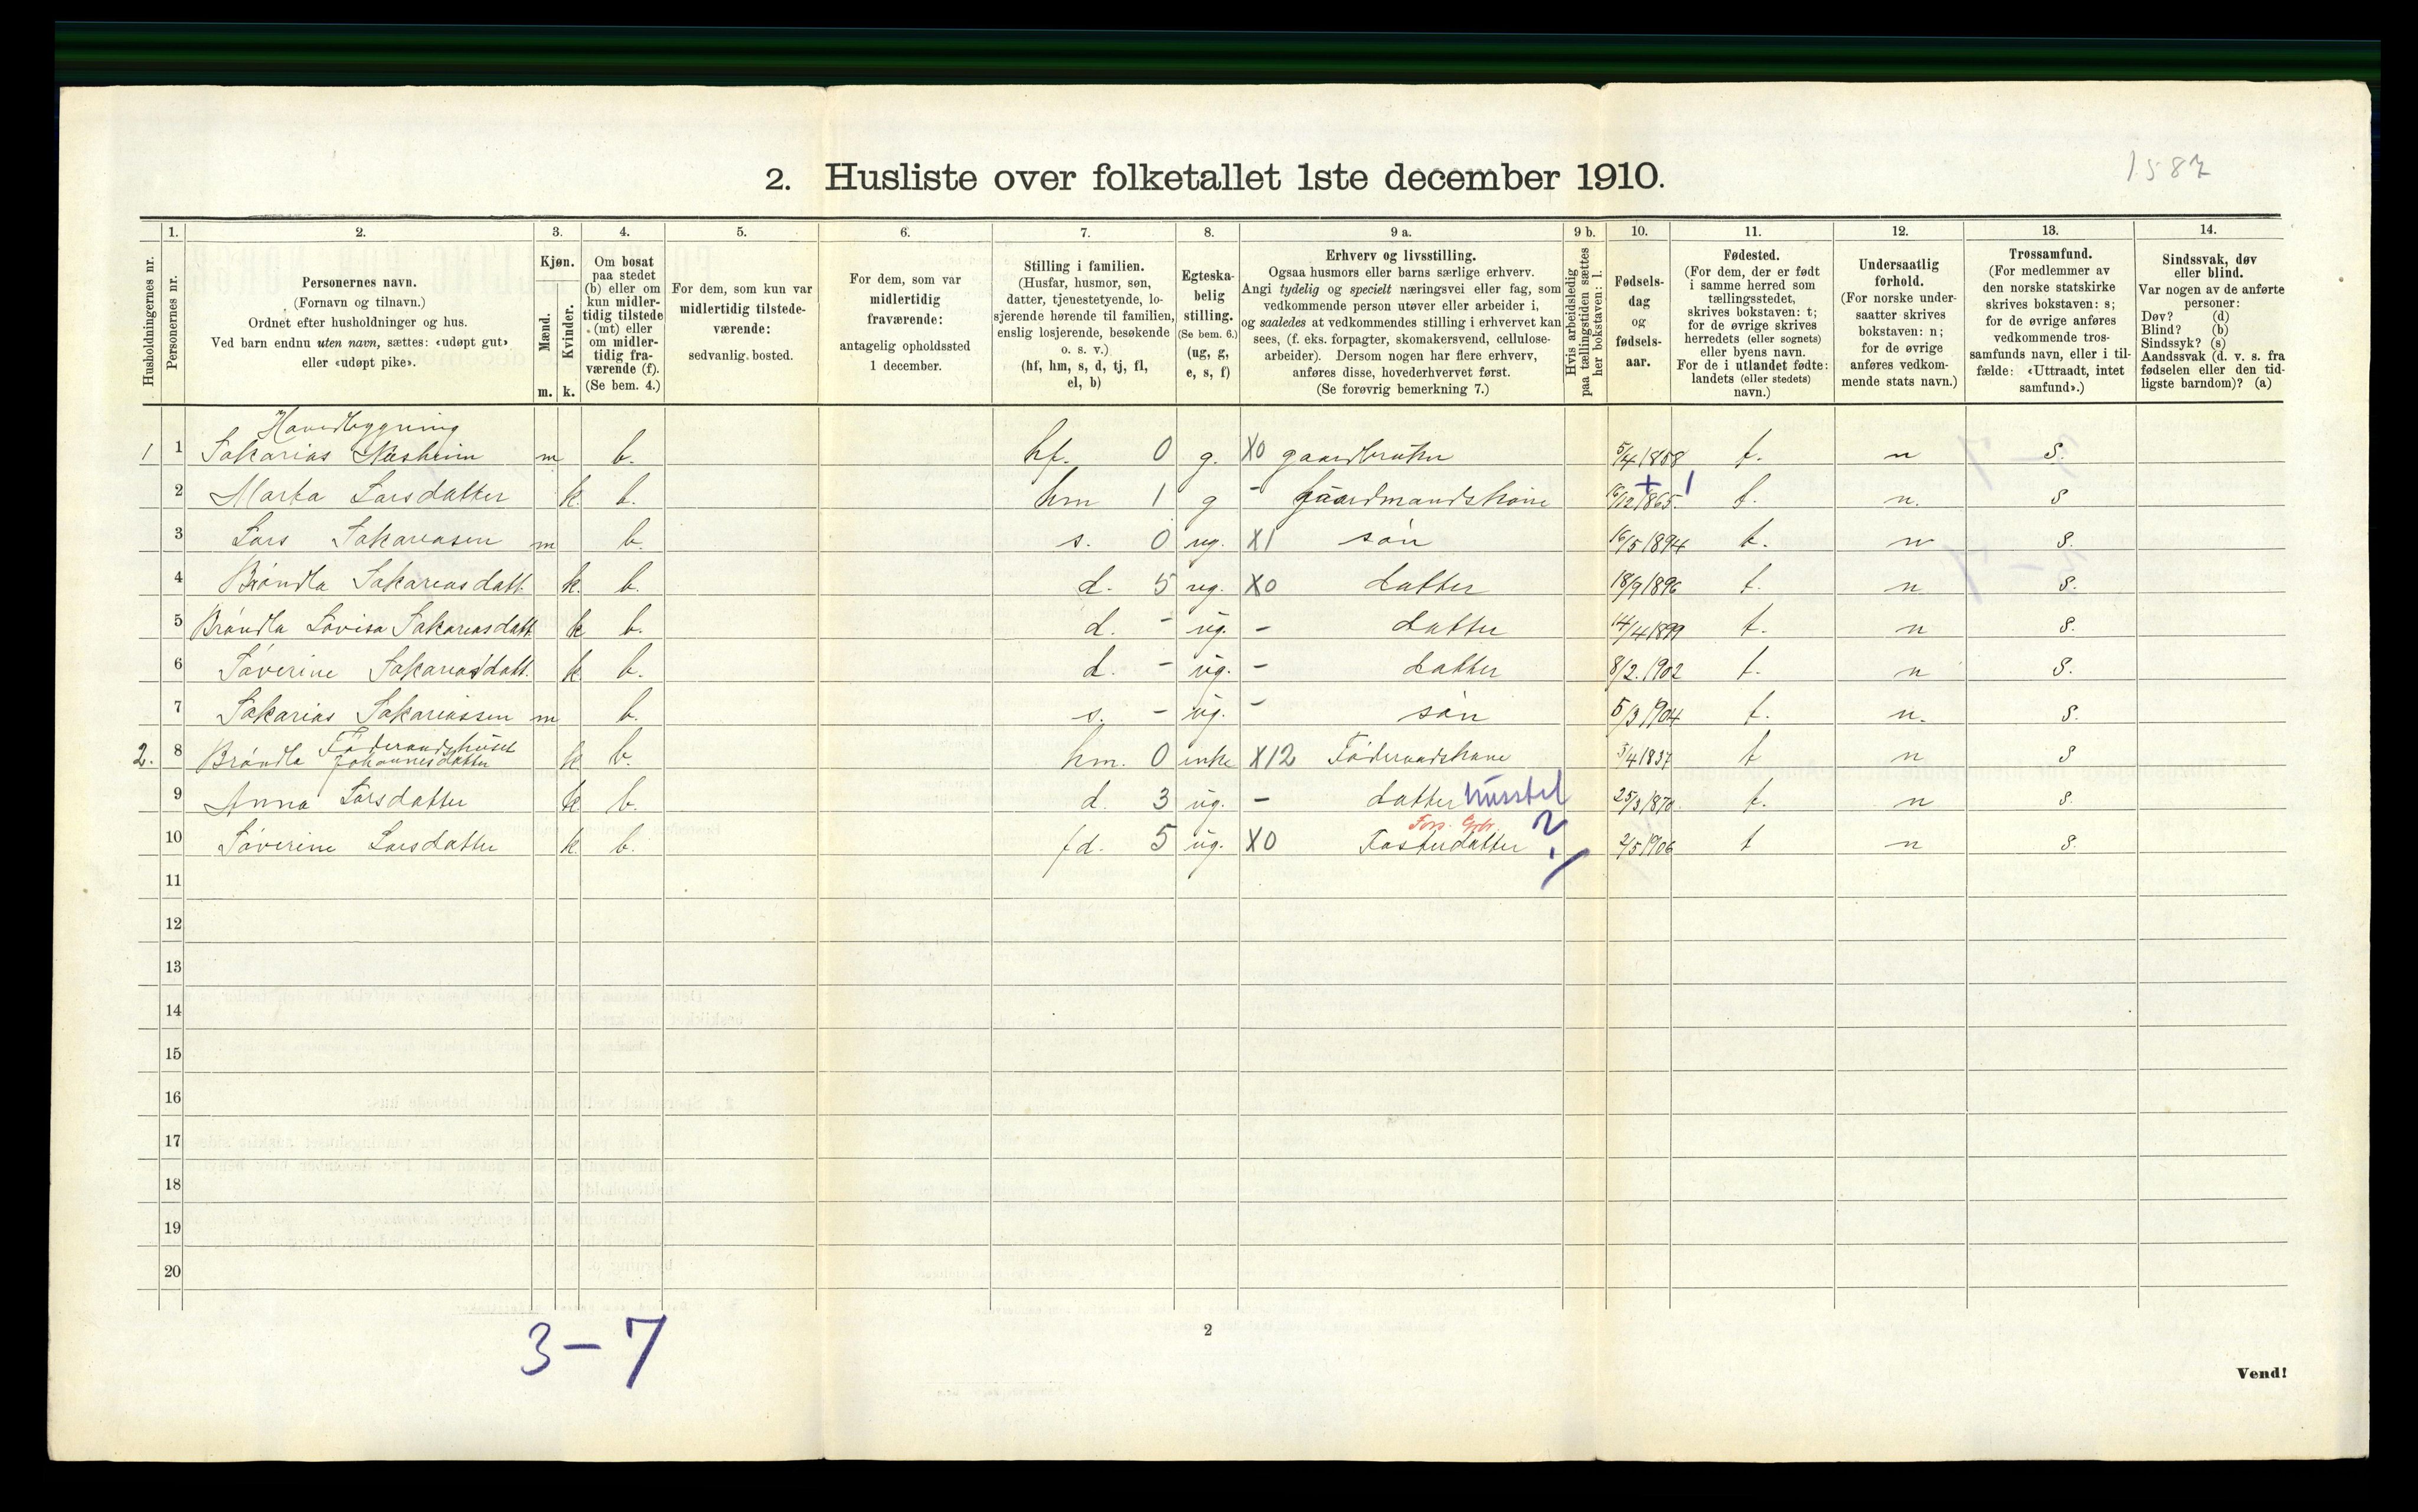 1587
2. Husliste over folketallet 1ste december 1910.
1. 2. 3. 4. 5. 6. 7. 8. 9 a. 9 b. 10. 11. 12. 13. 14.
Husholdningernes nr.
Personernes nr.
Personernes navn.
(Fornavn og tilnavn.)
Ordnet efter husholdninger og hus.
Ved barn endnu uten navn, sættes: «udøpt gut»
eller «udøpt pike».
Kjøn.
Mænd.
Kvinder.
m. k.
Om bosat
paa stedet
(b) eller om
kun midler-
tidig tilstede
(mt) eller
om midler-
tidig fra-
værende (f).
(Se bem. 4.)
For dem, som kun var
midlertidig tilstede-
værende:
sedvanlig bosted.
For dem, som var
midlertidig
fraværende:
antagelig opholdssted
1 december.
Stilling i familien.
(Husfar, husmor, søn,
datter, tjenestetyende, lo-
sjerende hørende til familien,
enslig losjerende, besøkende
o. s. v.)
(hf, hm, s, d, tj, fl,
el, b)
Egteska-
belig
stilling.
(Se bem. 6.)
(ug, g,
e, s, f)
Erhverv og livsstilling.
Ogsaa husmors eller barns særlige erhverv.
Angi tydelig og specielt næringsvei eller fag, som
vedkommende person utøver eller arbeider i,
og saaledes at vedkommendes stilling i erhvervet kan
sees, (f. eks. forpagter, skomakersvend, cellulose-
arbeider). Dersom nogen har flere erhverv,
anføres disse, hovederhvervet først.
(Se forøvrig bemerkning 7.)
Hvis arbeidsledig
paa tællingstiden sættes
her bokstaven: l.
Fødsels-
dag
og
fødsels-
aar.
Fødested.
(For dem, der er født
i samme herred som
tællingsstedet,
skrives bokstaven: t;
for de øvrige skrives
herredets (eller sognets)
eller byens navn.
For de i utlandet fødte:
landets (eller stedets)
navn.)
Undersaatlig
forhold.
(For norske under-
saatter skrives
bokstaven: n;
for de øvrige
anføres vedkom-
mende stats navn.)
Trossamfund.
(For medlemmer av
den norske statskirke
skrives bokstaven: s;
for de øvrige anføres
vedkommende tros-
samfunds navn, eller i til-
fælde: «Uttraadt, intet
samfund».)
Sindssvak, døv
eller blind.
Var nogen av de anførte
personer:
Døv? (d)
Blind? (b)
Sindssyk? (s)
Aandssvak (d. v. s. fra
fødselen eller den tid-
ligste barndom)? (a)
Hovedbygning
1 1 Sakarias Næsheim m b. hf. 0 g. X0 gaardbruker 5/4 1858 t. n s.
2 Marta Larsdatter k b. hm 1 g - gaardmandskone 16/12 1865. + 1 t. n. s
3 Lars Sakariasen m b. s. 0 ug. X1 søn 16/5 1894 t. n s.
4 Brøndla Sakariasdatt. k. b. d. 5 ug. X0 datter 18/9 1896 t. n s.
5 Brøndla Lovisa Sakariasdatt. k b. d. - ug. - datter 14/4 1899 t. n s.
6 Søverine Sakariasdatt. k b. d. - ug. - datter 8/2. 1902 t. n s.
7 Sakarias Sakariassen m b. s. - ug. - søn 5/3 1904 t. n. s.
Føderaadshuset
2. 8 Brøndla Johannesdatter k b. hm. 0 enke X12 Føderaadskone 3/4 1837 t n s
9 Anna Larsdatter k b. d. 3 ug. - datter husstel 25/3 1870 t. n s.
Fors. Gbr. ?
10 Søverine Larsdatter k b. fd. 5 ug. X0 Fosterdatter 2/5 1906 t n s.
11
12
13
14
15
16
17
18
19
20
3-7
2
Vend!